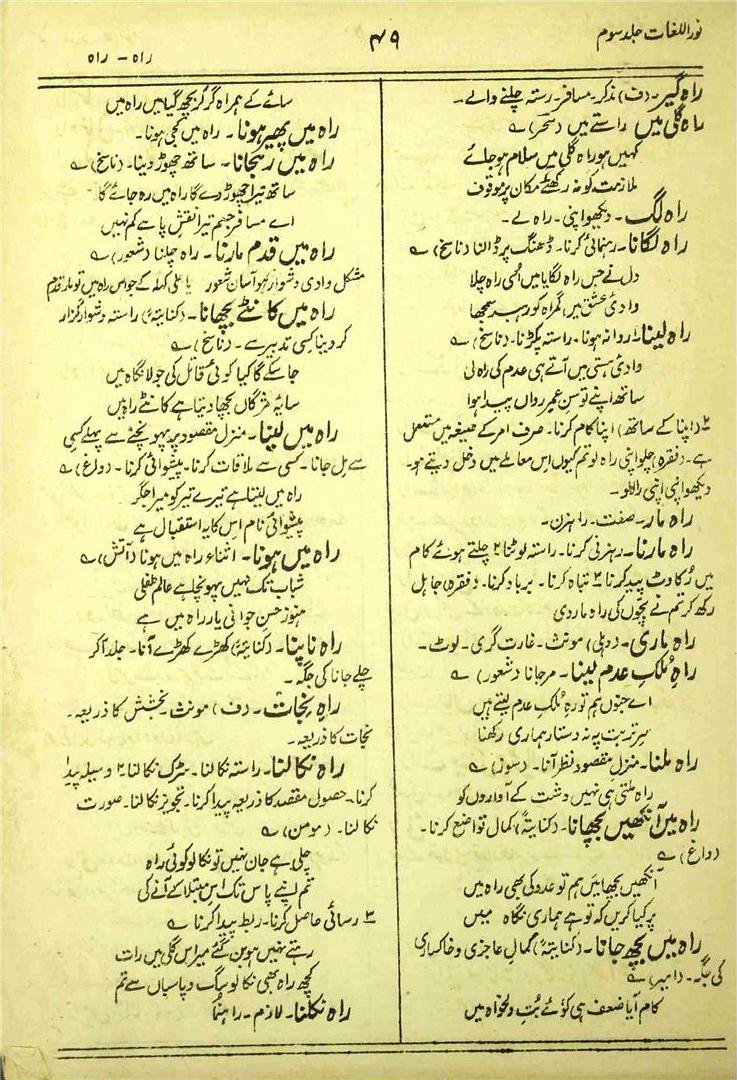 نور اللغات جلد سوم
۴۹
راہ - راہ
راہ گیر۔ (ف) مذکر۔ مسافر۔ رستہ چلنے والے۔
راہ گلی میں راستے میں (سحر) ؎
کہیں ہو راہ گلی میں سلام ہو جائے
ملازمت کو نہ رکھئے مکان پر موقوف
راہ لگ۔ دیکھو اپنی۔ راہ لے۔
راہ لگانا۔ رہنمائی کرنا۔ ڈھنگ پر ڈالنا (ناسخ) ؎
دل نے جس راہ لگایا میں اُسی راہ چلا
وادیٔ عشق میں گمراہ کو رہبر سمجھا
راہ لینا۔ ۱ روانہ ہونا۔ راستہ پکڑنا۔ (ناسخ) ؎
وادیٔ ہستی میں آتے ہی عدم کی راہ لی
ساتھ اپنے توسنِ عمرِ رواں پیدا ہوا
۲ (اپنا کے ساتھ) اپنا کام کرنا۔ صرف امر کے صیغہ میں مستعمل
ہے۔ (فقرہ) چلو اپنی راہ لو تم کیوں اس معاملے میں دخل دیتے ہو۔
دیکھو اپنی اپنی راہ لو۔
راہ مار۔ صفت۔ راہزن۔
راہ مارنا۔ رہزنی کرنا۔ راستہ لوٹنا ۲ چلتے ہوئے کام
میں رُکاوٹ پیدا کرنا ۳ تباہ کرنا۔ برباد کرنا۔ (فقرہ) جاہل
رکھ کر تم نے بچّوں کی راہ مار دی
راہ ماری۔ (دہلی) مونث۔ غارت گری۔ لوٹ۔
راہِ مُلکِ عدم لینا۔ مرجانا (شعور) ؎
اے جنوں ہم تو رہِ مُلکِ عدم لیتے ہیں
سرِ تربت پہ نہ دستار ہماری رکھنا
راہ ملنا۔ منزلِ مقصود نظر آنا۔ (سوز) ؎
راہ ملتی ہی نہیں دشت کے آواروں کو
راہ میں آنکھیں بچھانا۔ (کنایتہً) کمال تواضع کرنا۔
(داغ) ؎
آنکھیں بچھائیں ہم تو عدو کی بھی راہ میں
پر کیا کریں کہ تو ہے ہماری نگاہ میں
راہ میں بچھ جانا۔ (کنایتہً) کمالِ عاجزی و خاکساری
کی جگہ۔ ؎
کام آیا ضعف ہی کوئے بُتِ دلخواہ میں
سائے کے ہمراہ گر گر بچھ گیا میں راہ میں
راہ میں پھیر ہونا۔ راہ میں کجی ہونا۔
راہ میں رہجانا۔ ساتھ چھوڑ دینا۔ (ناسخ) ؎
ساتھ تیرا چھوڑ دے گا راہ میں رہ جائے گا
اے مسافر جسم تیرا نقشِ پا سے کم نہیں
راہ میں قدم مارنا۔ راہ چلنا (شعور) ؎
مشکل وادی دشوار کہو آسان شعور یا علی کہہ کے جو اس راہ میں تو مار قدم
راہ میں کانٹے بچھانا۔ (کنایتہً) راستہ دشوار گزار
کر دینا کسی تدبیر سے۔ (ناسخ) ؎
جا سکے گا کیا کوئی قاتل کی جولا نگاہ میں
سایۂ مژگاں بچھا دیتا ہے کانٹے راہ میں
راہ میں لینا۔ منزل مقصود پر پہونچنے سے پہلے کسی
سے مِل جانا۔ کسی سے ملاقات کرنا۔ پیشوائی کرنا۔ (داغ) ؎
راہ میں لیتا ہے تیرے تیر کو میرا جگر
پیشوائی نام اس کا یہ استقبال ہے
راہ میں ہونا۔ اثناء راہ میں ہونا (آتش) ؎
شباب تک نہیں پہونچا ہے عالمِ طفلی
ہنوز حسنِ جوانی یار راہ میں ہے
راہ ناپنا۔ (کنایتہً) کھڑے کھڑے آنا۔ جلد آکر
چلے جانا کی جگہ۔
راہِ نجات۔ (ف) مونث۔ بخشش کا ذریعہ۔
نجات کا ذریعہ۔
راہ نکالنا۔ راستہ نکالنا۔ سڑک نکالنا ۲ وسیلہ پیدا
کرنا۔ حصول مقصد کا ذریعہ پیدا کرنا۔ تجویز نکالنا۔ صورت
نکالنا۔ (مومن) ؎
چلی ہے جان نہیں تو نکالو کوئی راہ
تم اپنے پاس تک اس مبتلا کے آنے کی
۳ رسائی حاصل کرنا۔ ربط پیدا کرنا ؎
رہتے نہیں ہو بن گئے میر اس گلی میں رات
کچھ راہ بھی نکالو سگ و پاسباں سے تم
راہ نکلنا۔ لازم۔ راہنُما